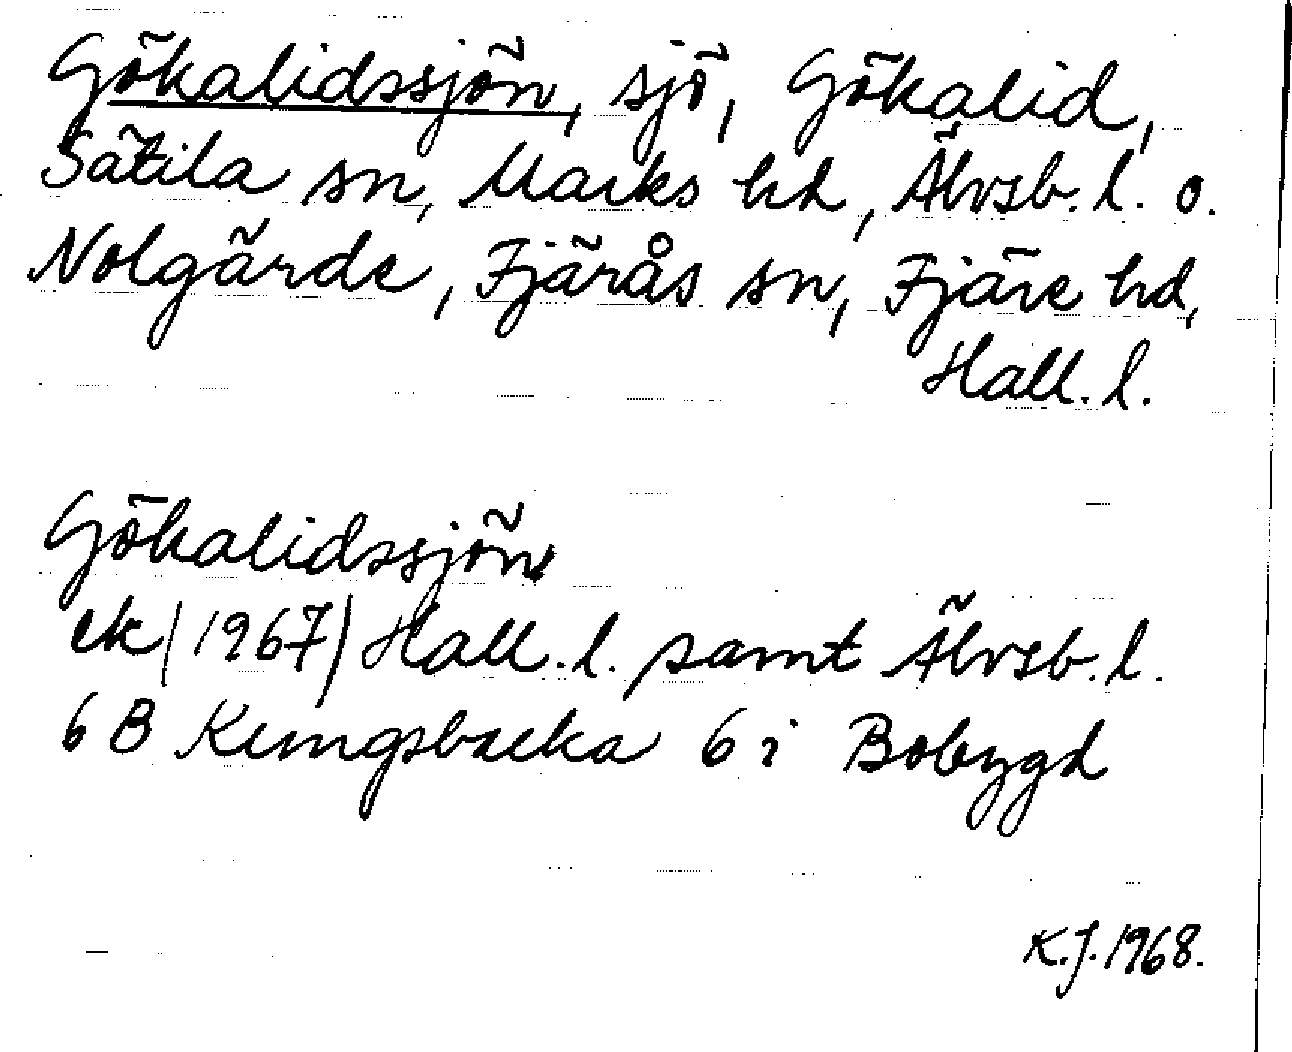 Gökalidssjön, sjö, Gökalid,
Sätila sn, Marks hd, Älvsb. l. o.
Nolgärde, Fjärås sn, Fjäre hd,
Hall. l.
Gökalidssjön
ek (1967) Hall. l. samt Älvsb. l.
6 B Kungsbacka 6 i Bobygd
K.J. 1968.